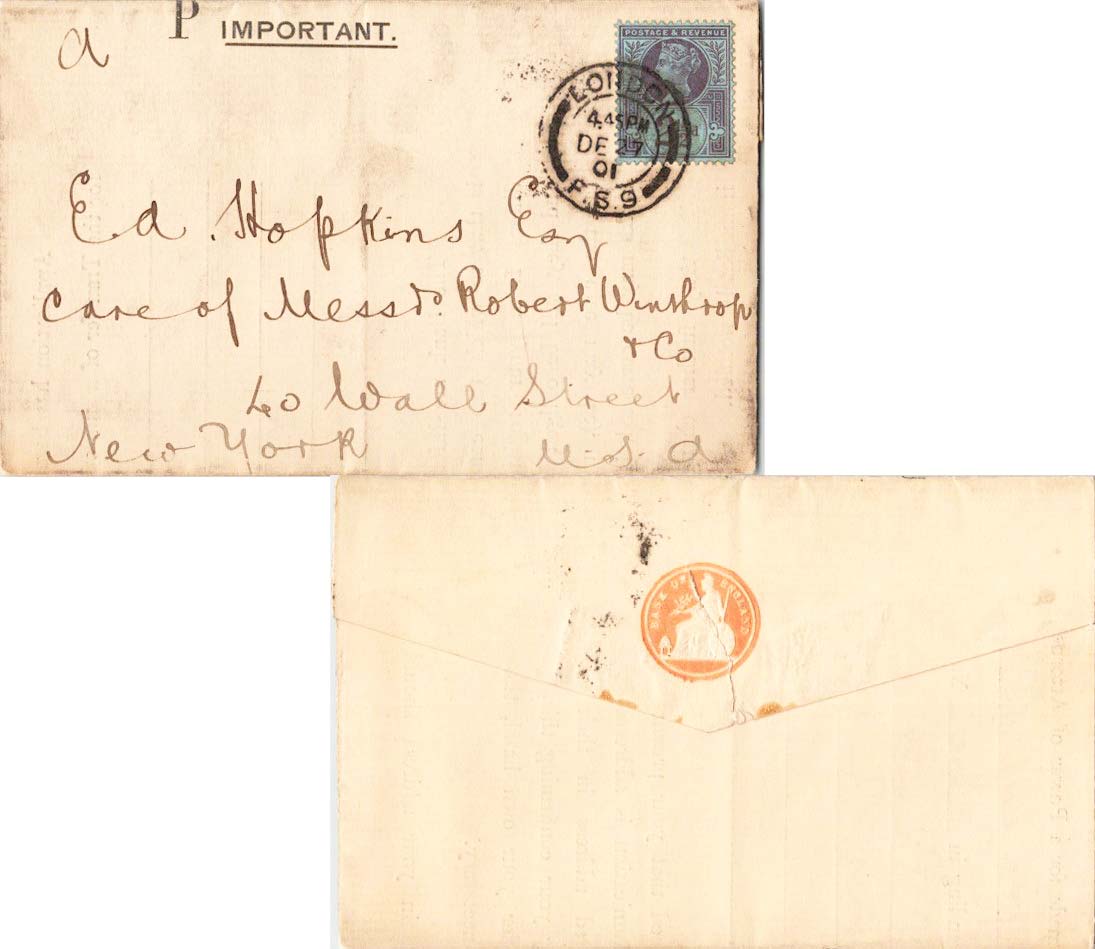 P IMPORTANT.
a
POSTAGE & REVENUE
LONDON
4.45PM
DE 27
01
F.S.9
Ed. Hopkins Esqr
care of Messrs. Robert Winthrop
& Co
40 Wall Street
New York U.S.A
BANK OF ENGLAND